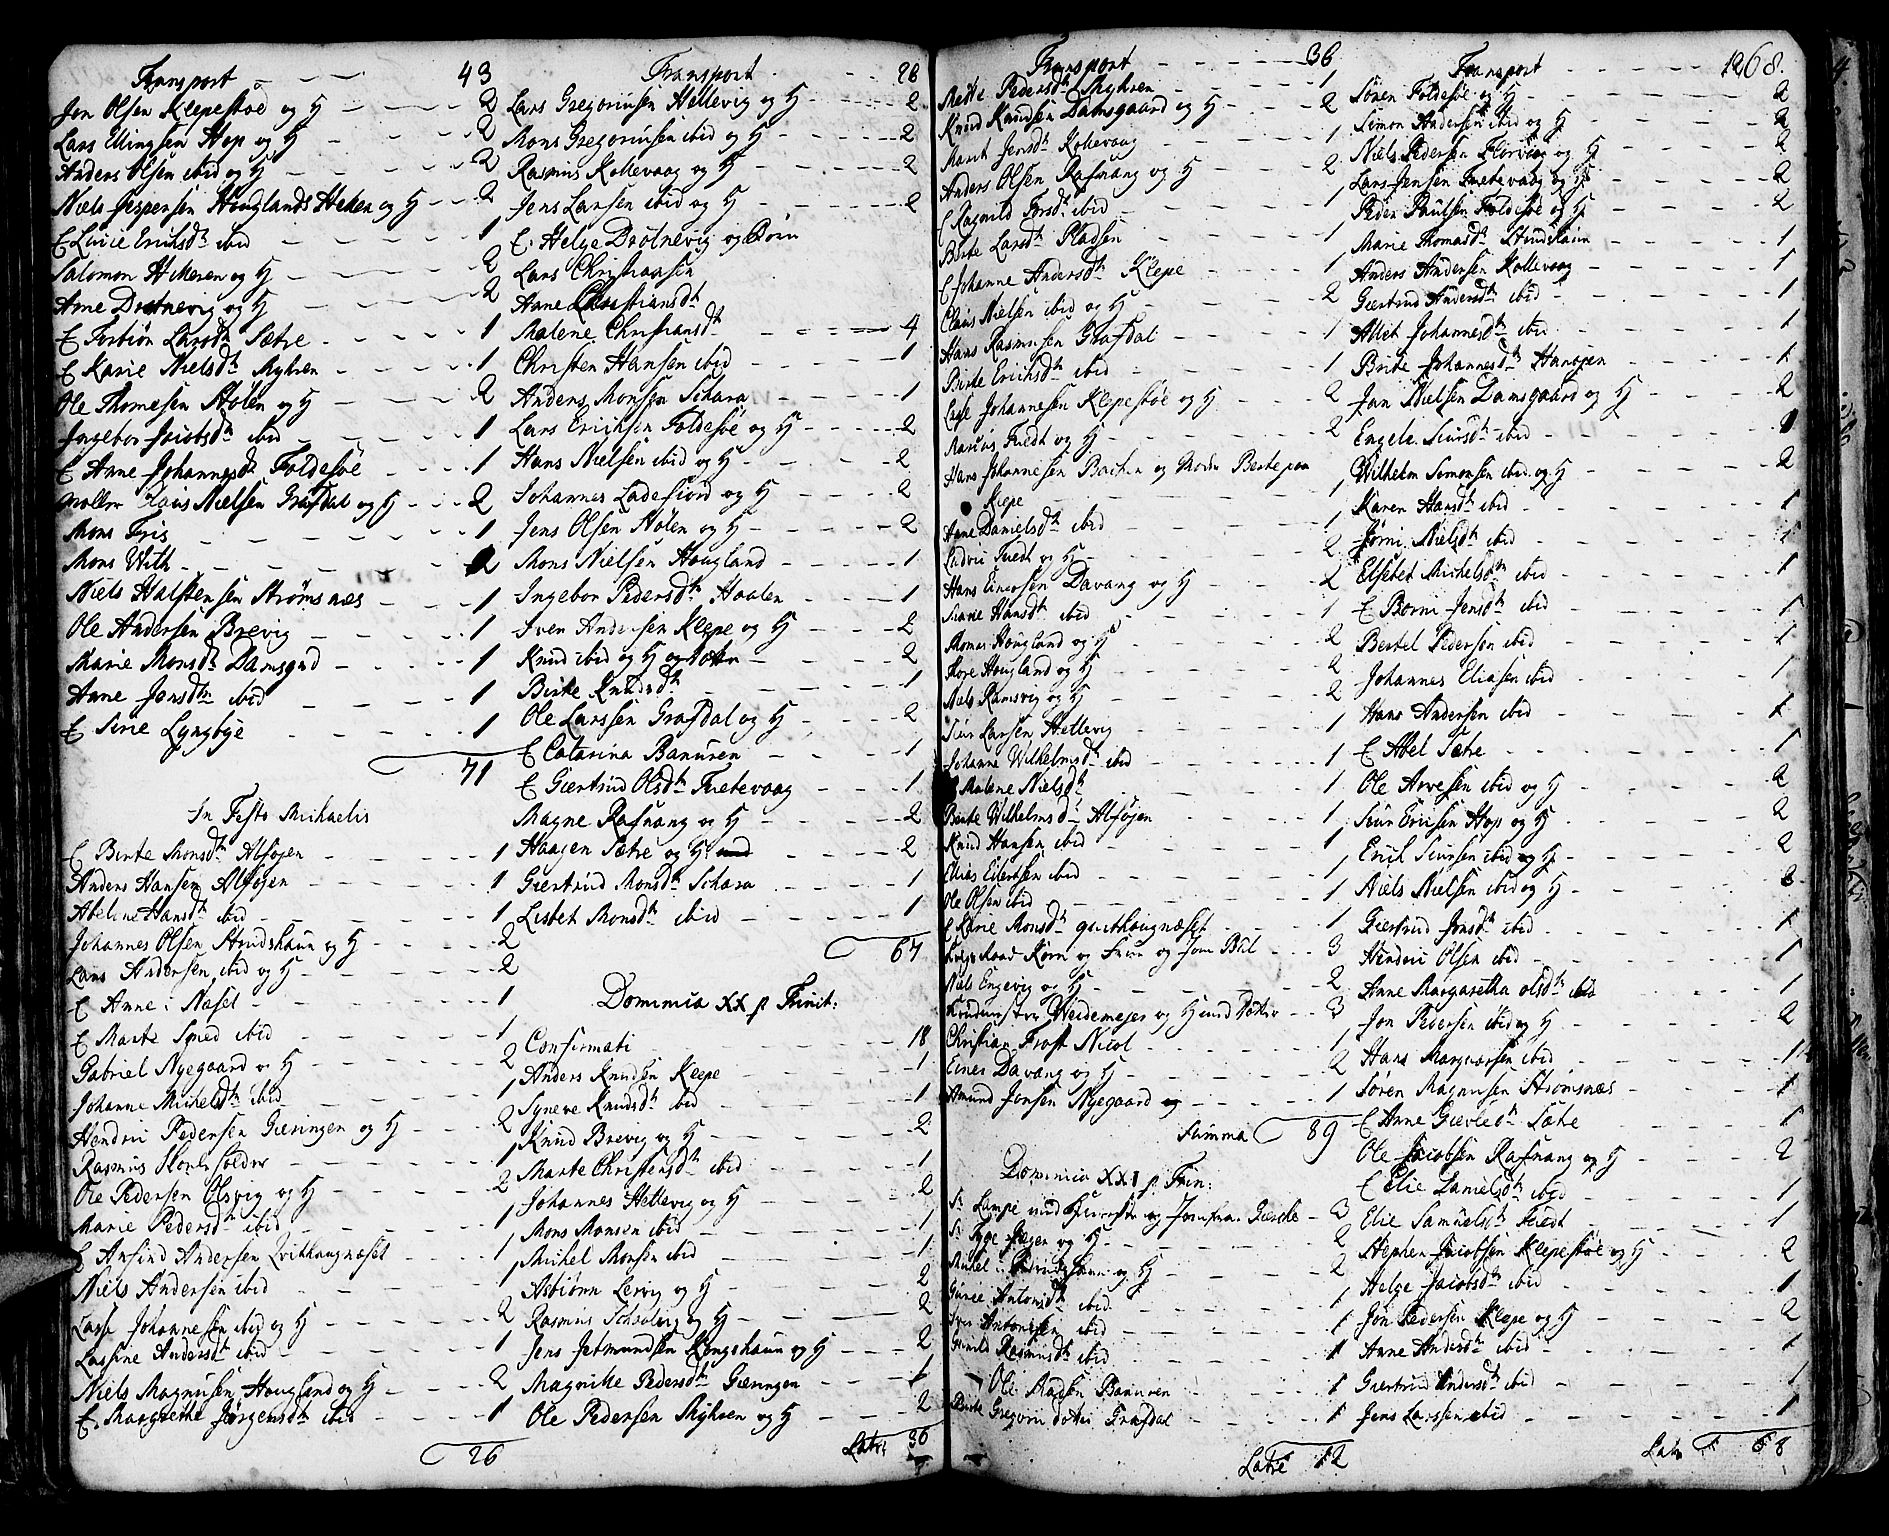 Transport - - - 43
Jon Olsen Klepestoe og H - - 2
Lars Ellingsen Hop og H - - - 2
Anders Olsen ibid og H - - - 2
Niels Jespersen Houglands Heken og H - - 2
E Livie Erichsdtr ibid - - - 1
Salomon Hekeren og H - - - 2
Arne Drotnevig og H - - - 2
E Torbiör Larsdtr Sætre - - - 1
E Karie Nielsdtr Myhren - - - 1
Ole Thomesen Stölen og H - - - 2
Ingebor Jacobsdtr ibid - - - 1
E Anne Johannesdtr Foldesöe - - - 1
Claus Nielsen Grafdal og H - - - 2
Mons Friis - - - 1
Mons With - - - 2
Niels Halstensen Strömsnæs - - - 1
Ole Andersen Brevig - - - 1
Marie Monsdtr Damsgrd - - - 1
Anne Jonsdtr ibid - - - 1
E Sirie Lyngbye - - - 1
71
In Festo Michaelis
E Birte Monsdtr Alföyen - - - 1
Anders Hansen Alföyen - - - 1
Abelene Hansdtr ibid - - - 1
Johannes Olsen Strudshaun og H - - - 2
Lars Andersen ibid og H - - - 2
E Anne i Næset - - - 1
E Marte Smed ibid - - - 1
Gabriel Nyegaard og H - - - 2
Johanne Michelsdtr ibid - - - 1
Hendric Pedersen Gieringen og H - - - 2
Rasmus - - - 1
Ole Pedersen Olsvig og H - - - 2
Marie Pedersdtr ibid - - - 1
E Ansind Andersen Qvithougnæset - - - 1
Niels Andersen ibid - - - 1
Lasse Johannesen ibid og H - - - 2
Lassine Andersdtr ibid - - - 1
Niels Magnusen Hougland og H - - - 2
E. Margrethe Jörgensdtr ibid - - - 1
26
Transport - - - 26
Lars Gregoriusen Hellevig og H - - - 2
Mons Gregoriusen ibid og H - - - 2
Rasmus Kollevaag og H - - - 2
Jens Larsen ibid og H - - - 2
E. Helge Drotnevig og Börn
Lars Christiansen
Anne Christiansdtr
Malene Christiansdtr - - - 4
Christen Hansen ibid - - - 1
Anders Monsen Schara - - - 1
Lars Erichsen Foldesöe og H - - - 2
Hans Nielsen ibid og H - - - 2
Johannes Ladefiord og H - - - 2
Jens Olsen Stölen og H - - - 2
Mons Nielsen Hougland - - - 1
Ingebor Pedersdtr Haalen - - - 1
Sven Andersen Klepe og H - - - 2
Knud ibid og H - - - 2
Birte Knudsdtr - - - 1
Ole Larssen Grafdal og H - - - 2
E Catarina Banuren - - - 1
E Giertrud Olsdtr Tuetevaag - - - 1
Magne Rafnang og H - - - 2
Haagen Sætre og H - - - 2
Giertrud Monsdtr Schara - - - 1
Lisbet Monsdtr ibid - - - 1
67
Dominica XX p Trinit:
Confirmati - - - 18
Anders Knudsen Klepe - - - 1
Syneve Knudsdtr ibid - - - 1
Knud Brevig og H - - - 2
Marte Christensdtr ibid - - - 1
Johannes Hellevig og H - - - 2
Mons Monsen ibid - - - 1
Michel Monsen ibid - - - 1
Asbiörn Lervig og H - - - 2
Rasmus Schaalvig og H - - - 2
Jens Jetmundsen Kongshaun og H - - - 2
Magnille Pedersdtr Gieringen - - - 1
Ole Pedersen Myhren og H - - - 2
Latus 36
Transport - - - 36
Mette Pedersdtr Myhren - - - 1
Knud Knudsen Damsgaard og H - - - 2
Marit Jensdtr Kollevaag - - - 1
Anders Olsen Rafnang og H - - - 2
E Ragnild Jorsdtr ibid - - - 1
Birte Larsdtr Pladsen - - - 1
E Johanne Andersdtr Klepe - - - 1
Claus Nielsen ibid og H - - - 2
Hans Rasmusen Grafdal - - - 1
Birte Erichsdtr ibid - - - 1
Lasse Johannesen Klepestöe og H - - - 2
Marcus Tuedt og H - - - 2
Hans Johannesen
Klepe - - - 1
Anne Danielsdtr ibid - - - 1
Ludvic Tuedt og H - - - 2
Hans Einersen Davang og H - - - 2
Marie Hansdtr ibid - - - 1
Thomas Hougland og H - - - 2
Tore Hougland og H - - - 2
Niels Ramsvig og H - - - 2
Siur Larsen Hellevig - - - 1
Johanne Wilhelmsdtr ibid - - - 1
E Malene Nielsdtr - - - 1
Berte Wilhelmsdtr Alföyen - - - 1
Knud Hansen ibid - - - 1
Elias Eilertsen ibid - - - 1
Ole Olsen ibid - - - 1
E Karie Monsdtr qvithougnæset - - - 1
Krigs Raad Korn og Frue og Jom Bul - - - 3
Niels Engevig og H - - - 2
Weidemejer og H - - - 3
Christian Frost Nicol - - - 1
Einer Davang og H - - - 2
Amund Jonsen Nyegaard - - - 1
Summa 89
Dominica XXI p. Trin:
Sr Lampe med Kiereste og Jomfru Giertche - 3
Sr Tyge Jæger og H - - - 2
Michel Strudshaun og H - - - 2
Guriee Antonisdtr ibid - - - 1
Iver Antonisen ibid - - - 1
Gunild Rasmusdtr ibid - - - 1
Ole Aadsen Banuren - - - 1
Birte Gregorii dotter Grafdal - - - 1
Latus 12
Transport - - - 12 68
Sören Foldesöe og H - - - 2
Simon Andersen ibid og H - - - 2
Niels Pedersen Florvaag og H - - - 2
Lars Jensen Tuetevaag og H - - - 2
Peder Paulsen Foldesöe og H - - - 2
Marie Thomasdtr Strudshaun - - - 1
Anders Andersen Kollevaag - - - 1
Giertrud Andersdtr ibid - - - 1
Allet Johannesdtr ibid - - - 1
Brite Johannesdtr Hanöyen - - - 1
Jan Nielsen Damsgaard og H - - - 2
Engele Siursdtr ibid - - - 1
Wilhelm Simonsen ibid og H - - - 2
Karen Hansdtr ibid - - - 1
Jörni Nielsdtr ibid - - - 1
Elsebet Michelsdtr ibid - - - 1
E Börni Jensdtr ibid - - - 1
Bertel Pedersen ibid - - - 1
Johannes Eliasen ibid - - - 1
Hans Andersen ibid - - - 1
E Abel Sætre - - - 1
Ole Arvesen ibid og H - - - 2
Siur Ericsen Hop og H - - - 2
Erich Siursen ibid og H - - - 2
Niels Nielsen ibid og H - - - 2
Giertrud Jonsdtr ibid - - - 1
Hendric Olsen ibid - - - 1
Anne Margaretha olsdtr ibid - - - 1
Jon Pedersen ibid og H - - - 2
Hans Marqvarsen ibid - - - 1
Sören Magnusen Strömsnæs - - - 1
E Anne Giertsdtr Sætre - - - 1
Ole Jacobsen Rafnang og H - - - 2
E Elie Danielsdtr ibid - - - 1
Elie Samuelsdtr Tuedt - - - 1
Stephen Jacobsen Klepestöe og H - - - 2
Helge Jacobsdtr ibid - - - 1
Jon Pedersen Klepe og H - - - 2
Anne Andersdtr ibid - - - 1
Giertrud Andersdtr ibid - - - 1
Jens Larssen ibid - - - 1
Latus 68